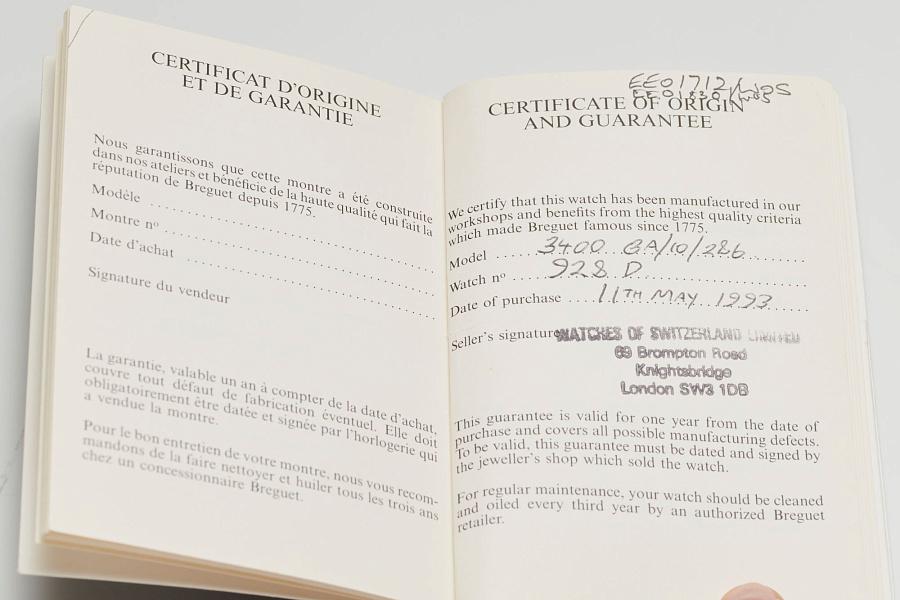 CERTIFICAT D'ORIGINE
ET DE GARANTIE
Nous garantissons que cette montre a été construite
dans nos ateliers et bénéficie de la haute qualité qui fait la
réputation de Breguet depuis 1775.
Modèle
Montre nº
Date d'achat
Signature du vendeur
La garantie, valable un an à compter de la date d'achat,
couvre tout défaut de fabrication éventuel. Elle doit
obligatoirement être datée et signée par l'horlogerie qui
a vendue la montre.
Pour le bon entretien de votre montre, nous vous recom-
mandons de la faire nettoyer et huiler tous les trois ans
chez un concessionnaire Breguet.
EE01712/
CERTIFICATE OF ORIGIN
AND GUARANTEE
We certify that this watch has been manufactured in our
workshops and benefits from the highest quality criteria
which made Breguet famous since 1775.
Model 3400 BA/10/286
Watch nº 928 D
Date of purchase 11TH MAY 1993
Seller's signature WATCHES OF SWITZERLAND LIMITED
69 Brompton Road
Knightsbridge
London SW3 1DB
This guarantee is valid for one year from the date of
purchase and covers all possible manufacturing defects.
To be valid, this guarantee must be dated and signed by
the jeweller's shop which sold the watch.
For regular maintenance, your watch should be cleaned
and oiled every third year by an authorized Breguet
retailer.